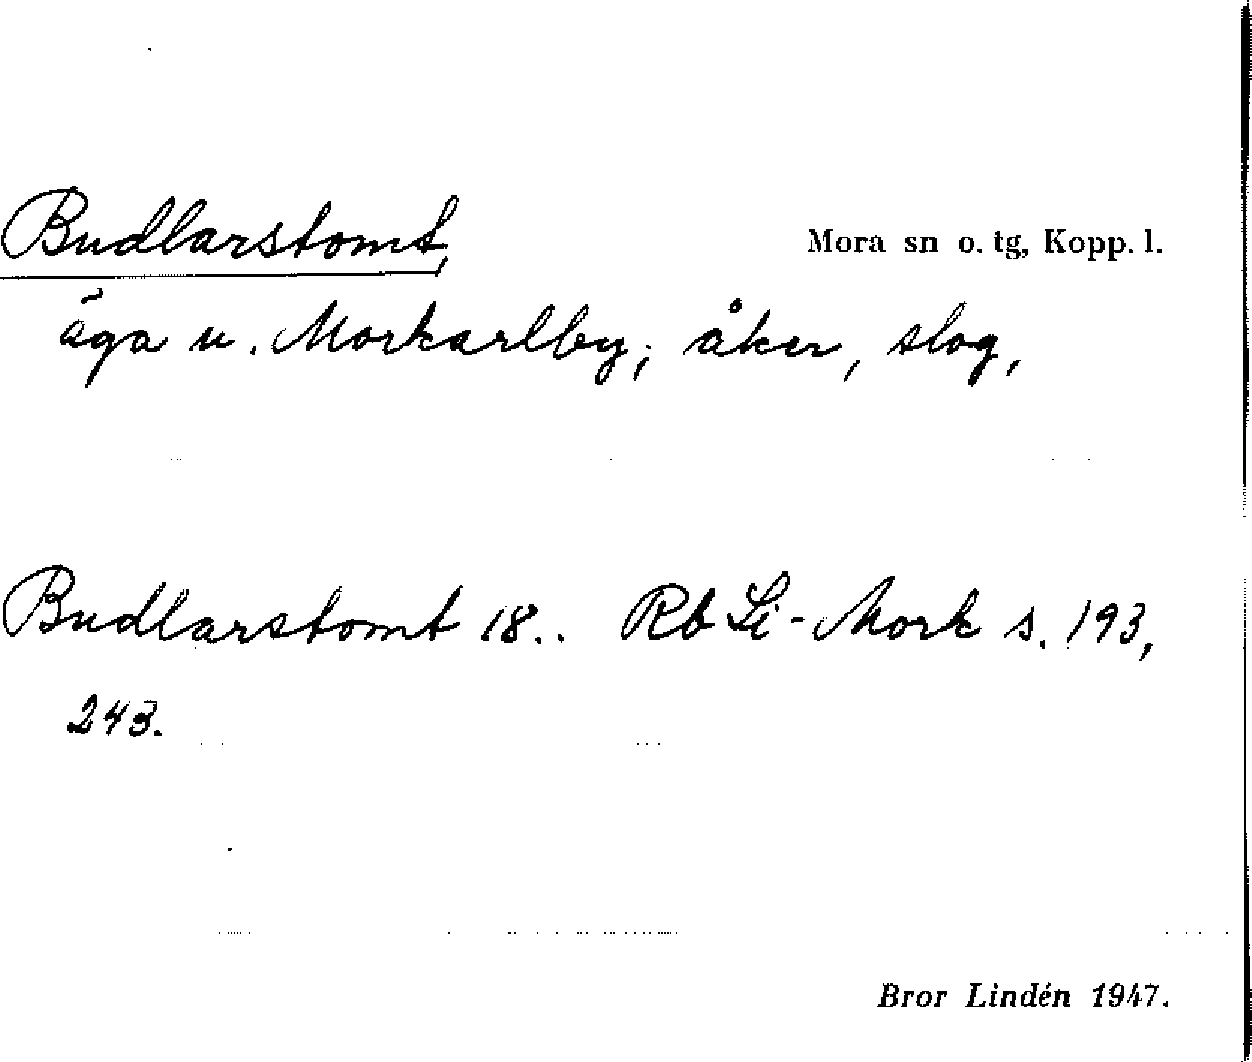 Budlarstomt, Mora sn o. tg, Kopp. l.
äga u. Morkarlby; åker, slog,
Budlarstomt 18.. Rb Li-Mork s. 193,
243.
Bror Lindén 1947.